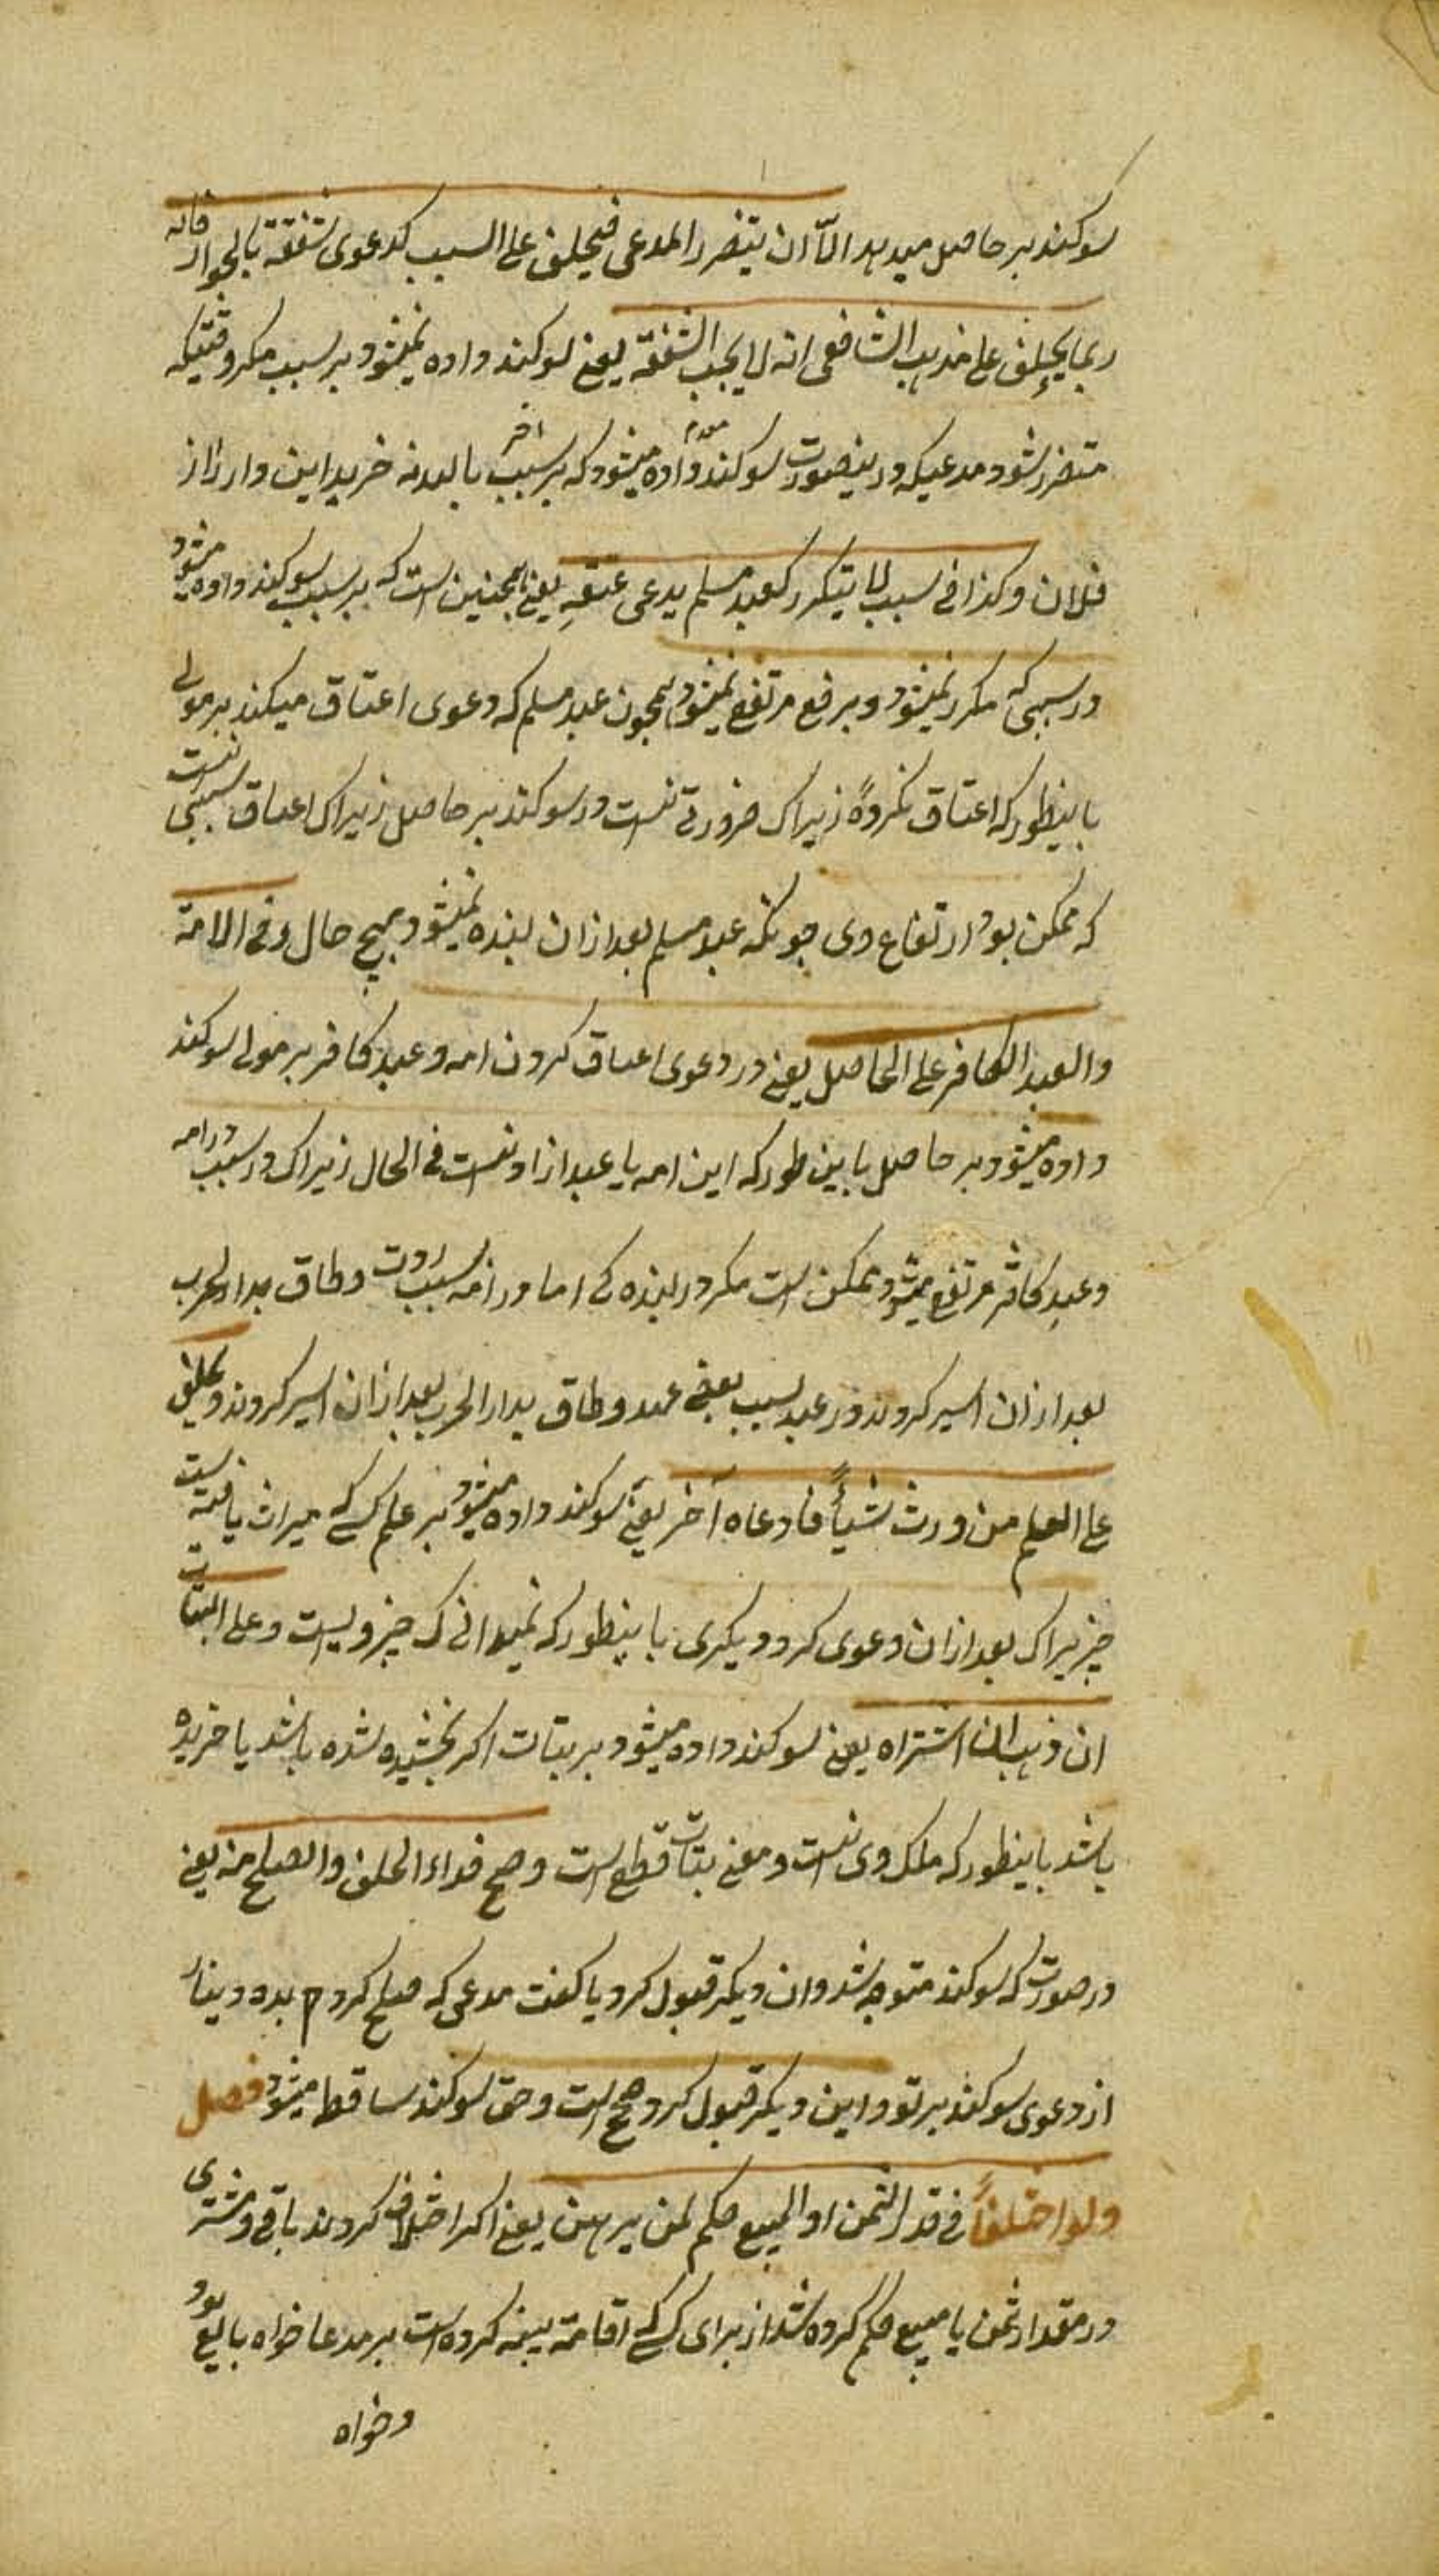 سوکند بر حاصل میدهد الّا ان یتضرر المدعی فیحلف علی السبب کدعوی شفعة بالجوار فانه
ربما یحلف علی مذهب الشافعی انه لا یجب الشفعة یعنی سوکند داده نمیشود بر سبب مکر وقتیکه
متضرر شود مدعی که درینصورت سوکند داده میشود که بر سبب بالله نه خرید این دار را از
فلان وکذا فی سبب لا یتکرر کعبد مسلم یدعی عتقه یعنی همچنین است که بر سبب سوکند داده میشود
در سببی که مکرر نمیشود و برفع مرتفع نمیشود همچون عبد مسلم که دعوی اعتاق میکند بر مولی
باینطور که اعتاق نکرده زیراک ضرورتی نیست در سوکند بر حاصل زیراک اعتاق سببی نیست
که ممکن بود ارتفاع وی چونکه عبد مسلم بعد ازان بنده نمیشود بهیچ حال وفی الامة
والعبد الکافر علی الحاصل یعنی در دعوی اعتاق کردن امه و عبد کافر بر مولی سوکند
داده میشود بر حاصل باین طور که این امه یا عبد ازاد نیست فی الحال زیراک در سبب در امه
وعبد کافر مرتفع میشود ممکن است مکرر در بنده کی اما در امه بسبب ردت و لحاق بدار الحرب
بعد ازان اسیر کردند و در عبد بسبب نقض عهد و لحاق بدار الحرب بعد ازان اسیر کردند ویحلف
علی العلم من ورث شیأً فادعاه آخر یعنی سوکند داده میشود بر علم کسی که میراث یافته است
چیزیراک بعد ازان دعوی کرد دیکری باینطور که نمیدانی ک چیز ویست وعلی البتات
ان وهب او اشتراه یعنی سوکند داده میشود بر بتات اکر بخشیده شده باشد یا خریده
باشد باینطور که ملک وی نیست و معنی بتات قطع است وصح فداء الحلف والصلح منه یعنی
در صورتی که سوکند متوجه شد وان دیکر قبول کرد یا کفت مدعی که صلح کردم بده دینار
از دعوی سوکند بر تو و این دیکر قبول کرد صحیح است و حق سوکند ساقط میشود فصل
ولو اختلفا فی قدر الثمن او المبیع حکم لمن برهن یعنی اکر اختلاف کردند بایع و مشتری
در مقدار ثمن یا مبیع حکم کرده شد از برای کسی که اقامة بینه کرده است بر مدعا خواه بایع بود
و خواه